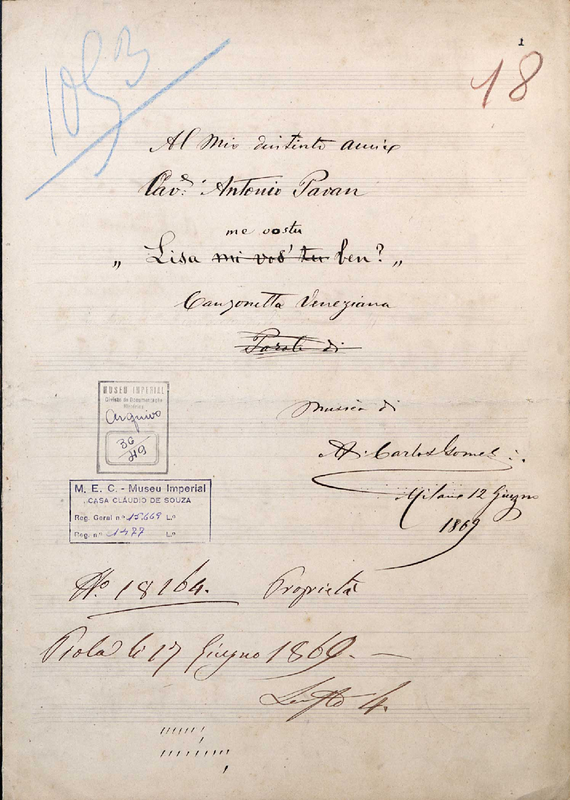 1
1053
18
Al mio distinto amico
Cav.r Antonio Pavan
me vostu
„ Lisa mi vos' tu ben? „
Canzonetta Veneziana
Parole di
MUSEU IMPERIAL
Divisão de Documentação
Histórica
Arquivo
36
219
musica di
A. Carlos Gomes
Milano 12 Giugno
1869
M. E. C. - Museu Imperial
CASA CLÁUDIO DE SOUZA
Reg. Geral n.º 15.669 L.º
Reg. n.º 1477 L.º
No 18164. Proprietà
li 17 Giugno 1869. —
4.